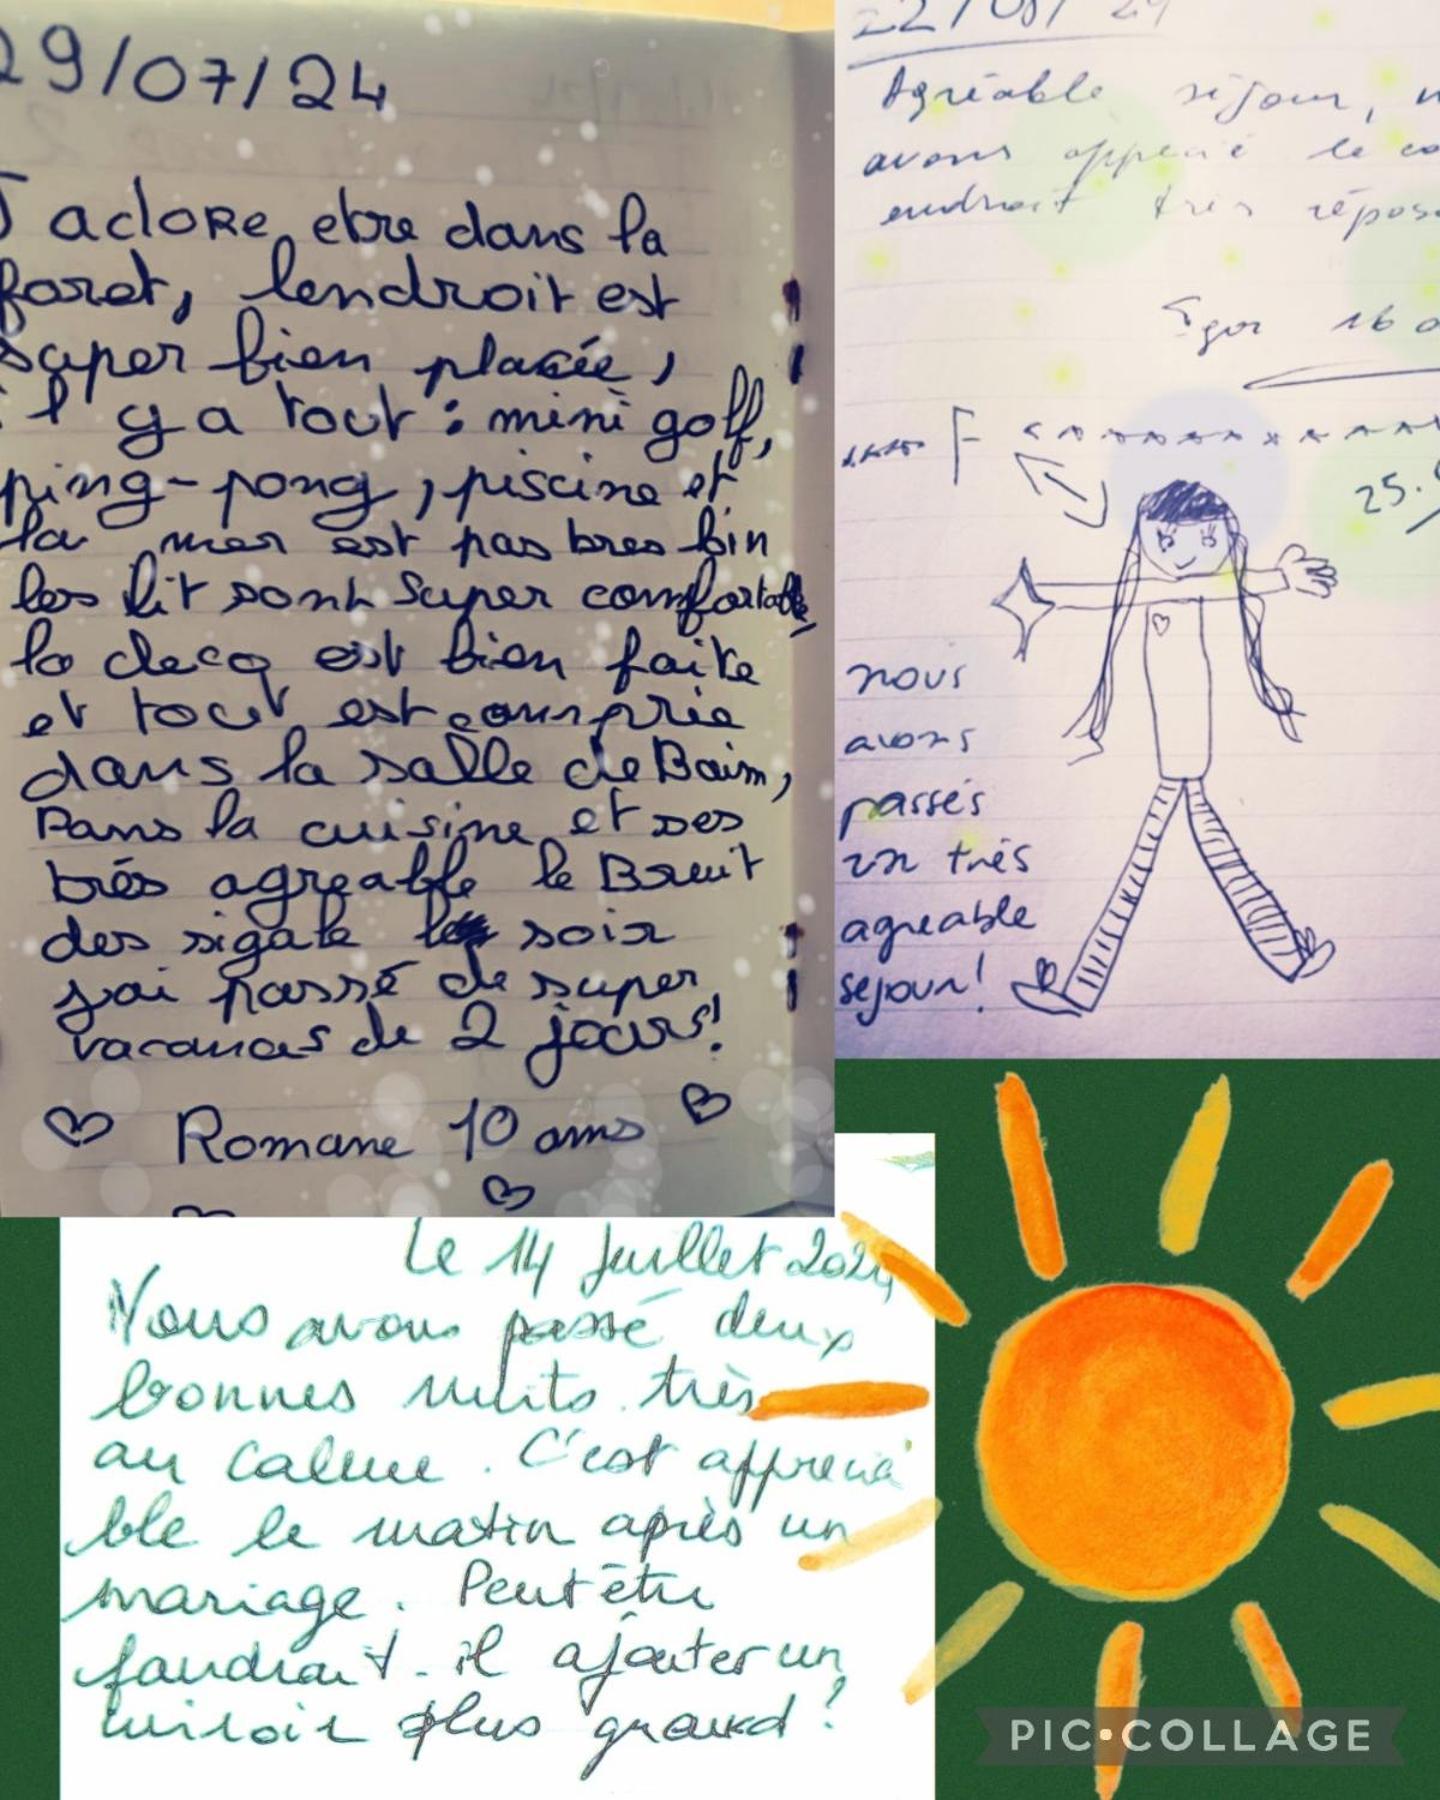 29/07/24
J'adore etre dans la
foret, lendroit est
super bien placée,
il y a tout : mini golf,
ping-pong, piscine et
la mer est pas tres loin
les lit sont super comfortable,
la deco est bien faite
et tout est comprie
dans la salle de Bain,
Dans la cuisine et ses
trés agreable le Bruit
des sigale le soir
jai passé de super
vacances de 2 jours!
Romane 10 ans
22/08/24
Agréable séjour, n
avons apprecié le co
endroit très réposa
Egor 16 a
F
25.
nous
avons
passés
un trés
agreable
sejour!
Le 14 Juillet 2024
Nous avons passé deux
bonnes nuits très
au calme. C'est apprecia
ble le matin après un
mariage. Peut être
faudrait-il ajouter un
miroir plus grand?
PIC•COLLAGE